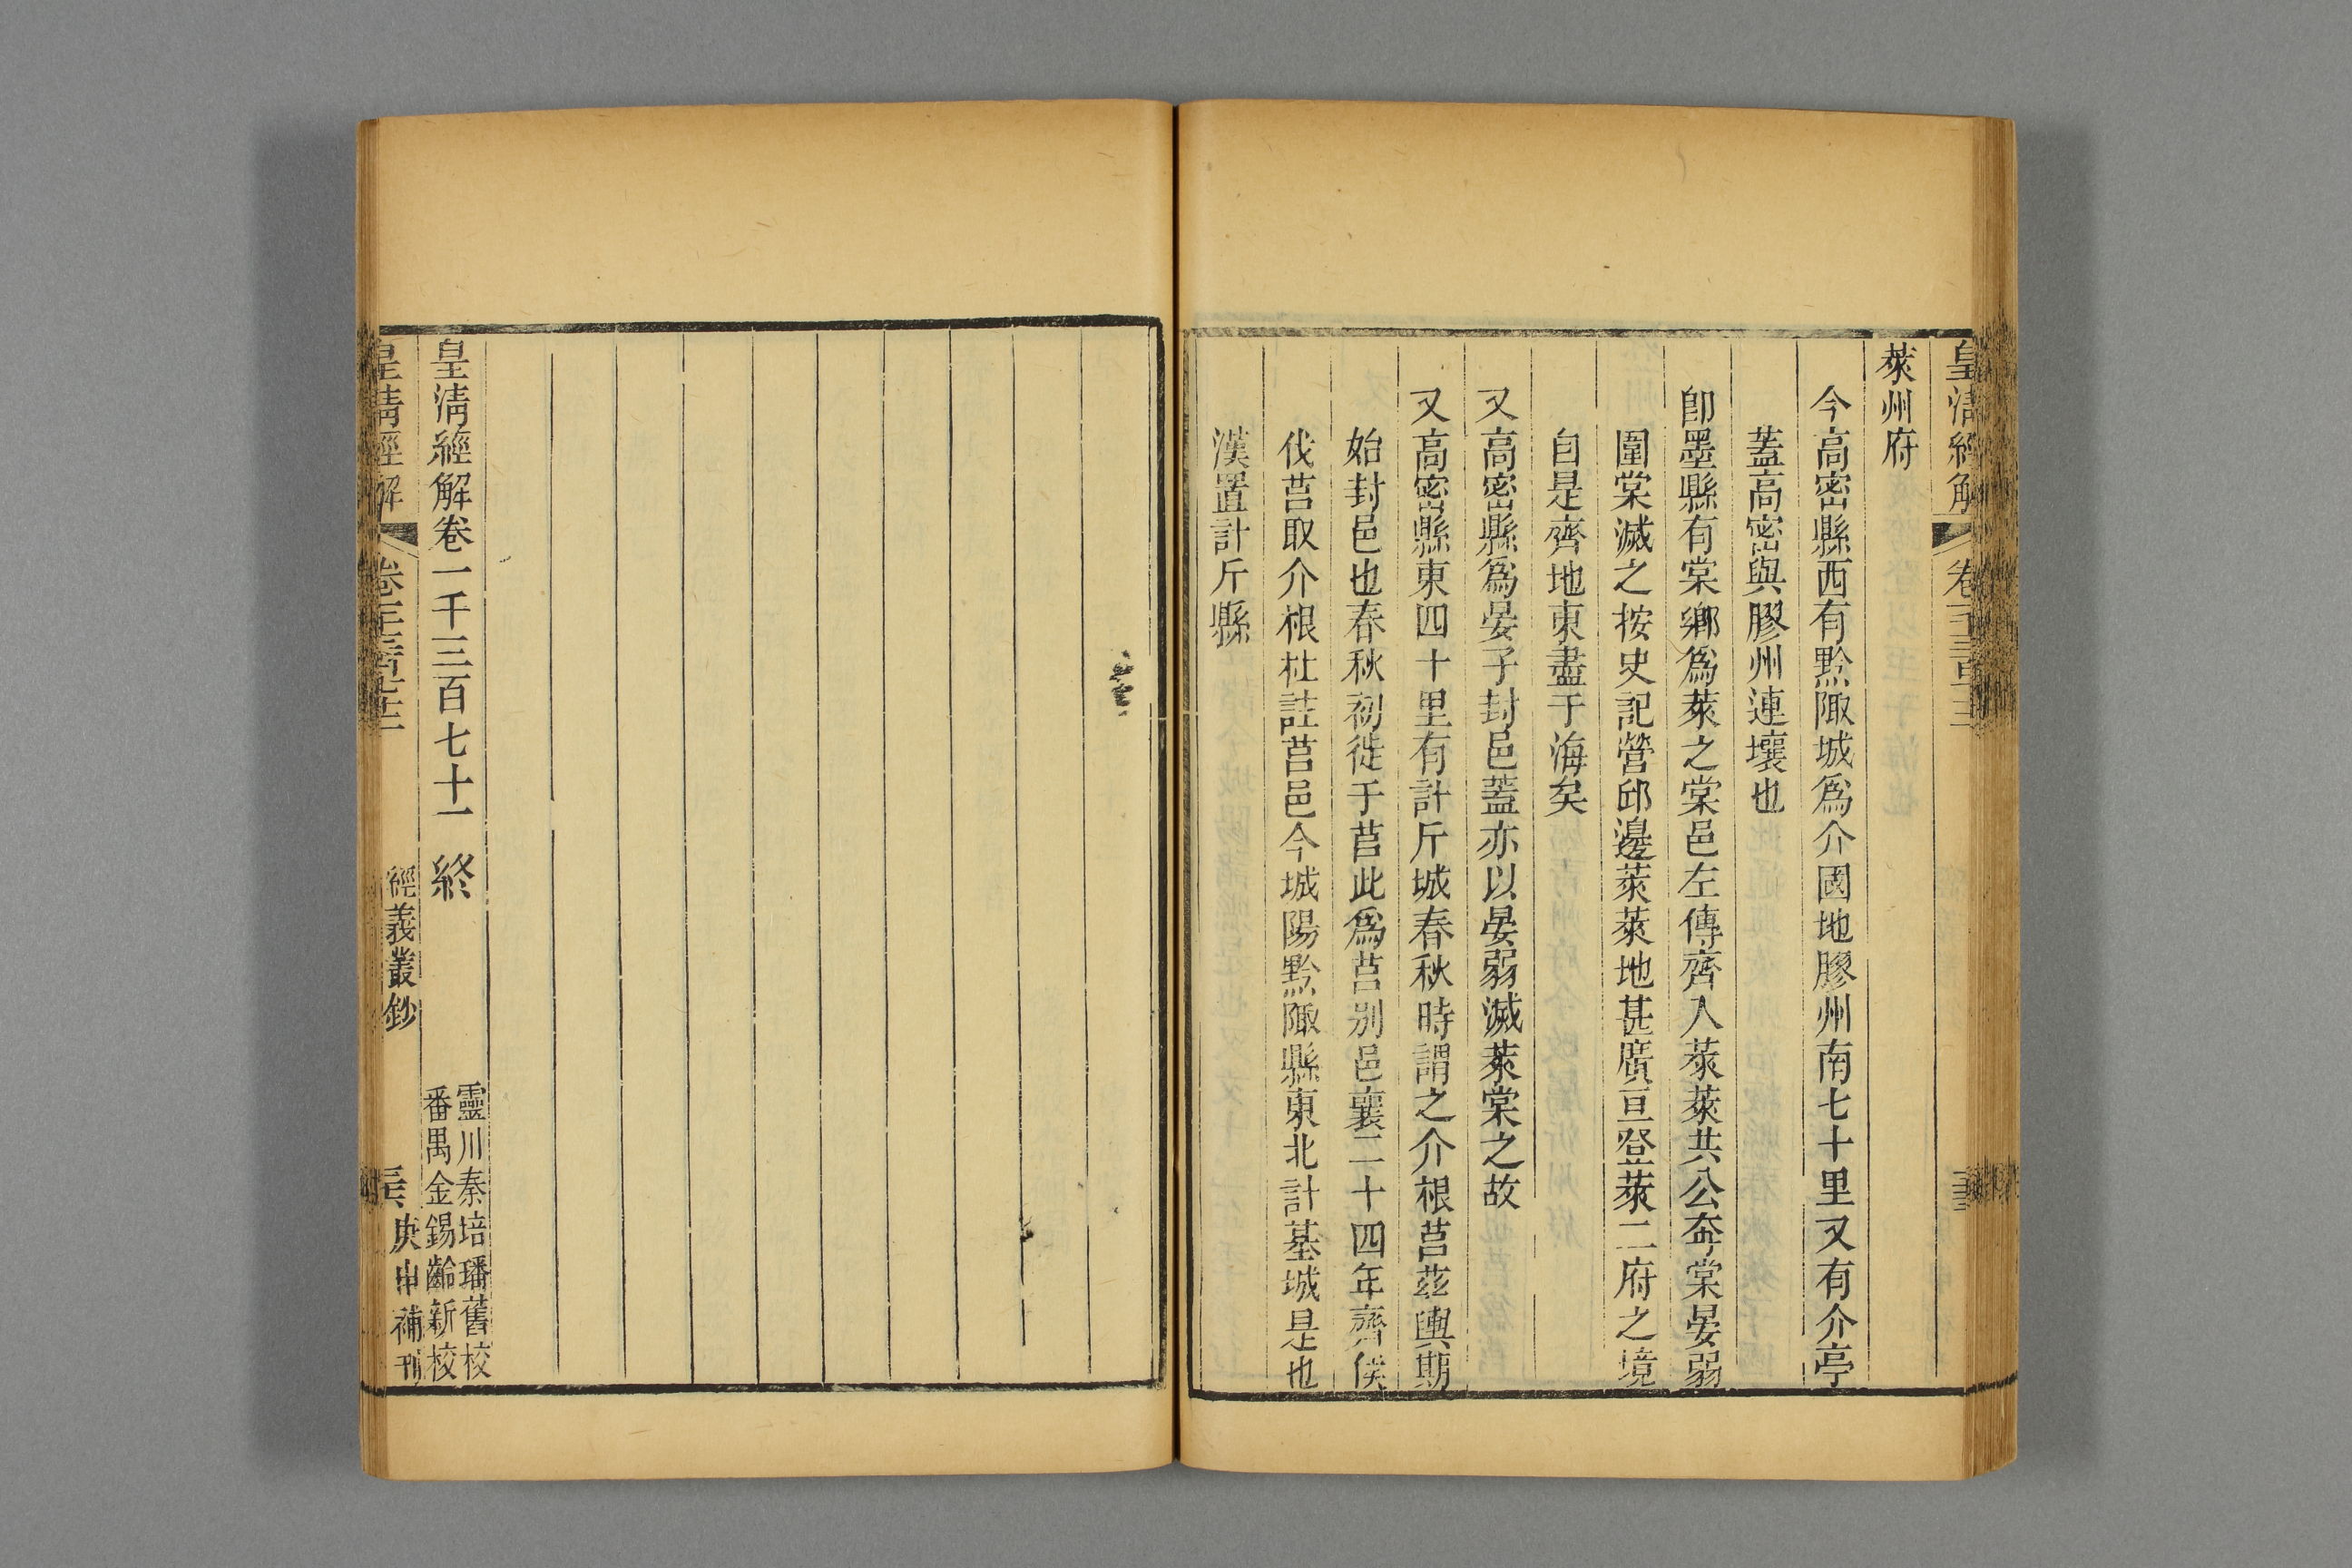 皇清經解
萊州府
今高密縣西有黔陬城爲介國地膠州南七十里又有介亭
蓋高密與膠州連壤也
卽墨縣有棠鄉爲萊之棠邑左傳齊人萊萊共公奔棠晏弱
圍棠滅之按史記營邱邊萊萊地甚廣亘登萊二府之境
自是齊地東盡于海矣
又高密縣爲晏子封邑蓋亦以晏弱滅萊棠之故
又高密縣東四十里有計斤城春秋時謂之介根莒茲輿期
始封邑也春秋初徙于莒此爲莒别邑襄二十四年齊侯
伐莒取介根杜註莒邑今城陽黔陬縣東北計基城是也
漢置計斤縣
皇清經解卷一千三百七十一 終
靈川秦培璠舊校
番禺金錫齡新校
皇清經解
經義叢鈔
庚申補刊